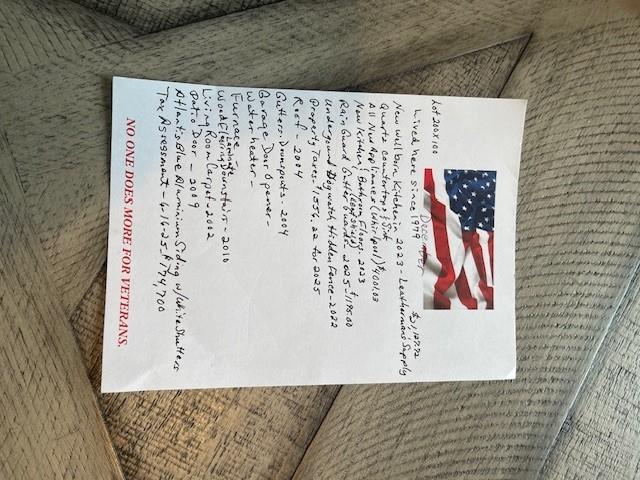 Lot 200X100
Lived here since 1979 December
New Wellborn Kitchen in 2023 - Leatherman's Supply $31,127.72
Quartz Countertop & Sink
All New Appliances (Whirlpool) $4001.03
New Kitchen & Bathroom Floors - 2023
Rain Guard Gutter Guards - 2025 - $1195.00
Underground Dogwatch Hidden Fence - 2022
Property Taxes - $1556.22 for 2025
Roof - 2004
Gutters - Downspouts - 2004
Garage Door Opener -
Water Heater -
Furnace
Wood Laminate Flooring Downstairs - 2010
Living Room Carpet - 2002
Patio Door - 2009
Atlantis Blue Aluminium Siding w/White Shutters
Tax Assessment - 6-16-25 - $174,700
NO ONE DOES MORE FOR VETERANS.